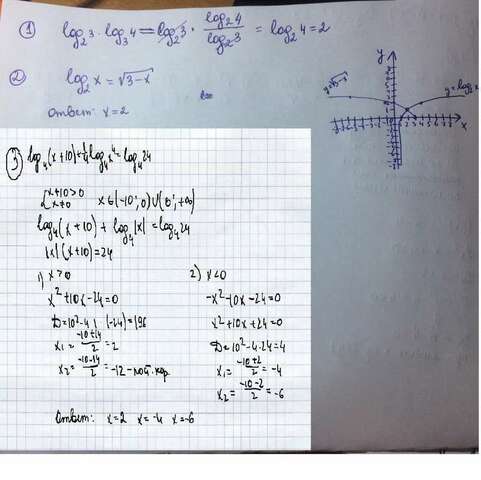 ① log₂3 · log₃4 = log₂3 · log₂4/log₂3 = log₂4 = 2
② log₂x = √3-x
Ответ: x=2
y
y=√3-x
y=log₂x
x
③ log₄(x+10)+½log₄x⁴=log₄24
{x+10>0
x≠0 x∈(-10;0)∪(0;+∞)
log₄(x+10)+log₄|x|=log₄24
|x|(x+10)=24
1) x>0
x²+10x-24=0
D=10²-4·(-24)=196
x₁=(-10+14)/2=2
x₂=(-10-14)/2=-12-пост. кор.
2) x<0
-x²-10x-24=0
x²+10x+24=0
D=10²-4·24=4
x₁=(-10+2)/2=-4
x₂=(-10-2)/2=-6
Ответ: x=2 x=-4 x=-6